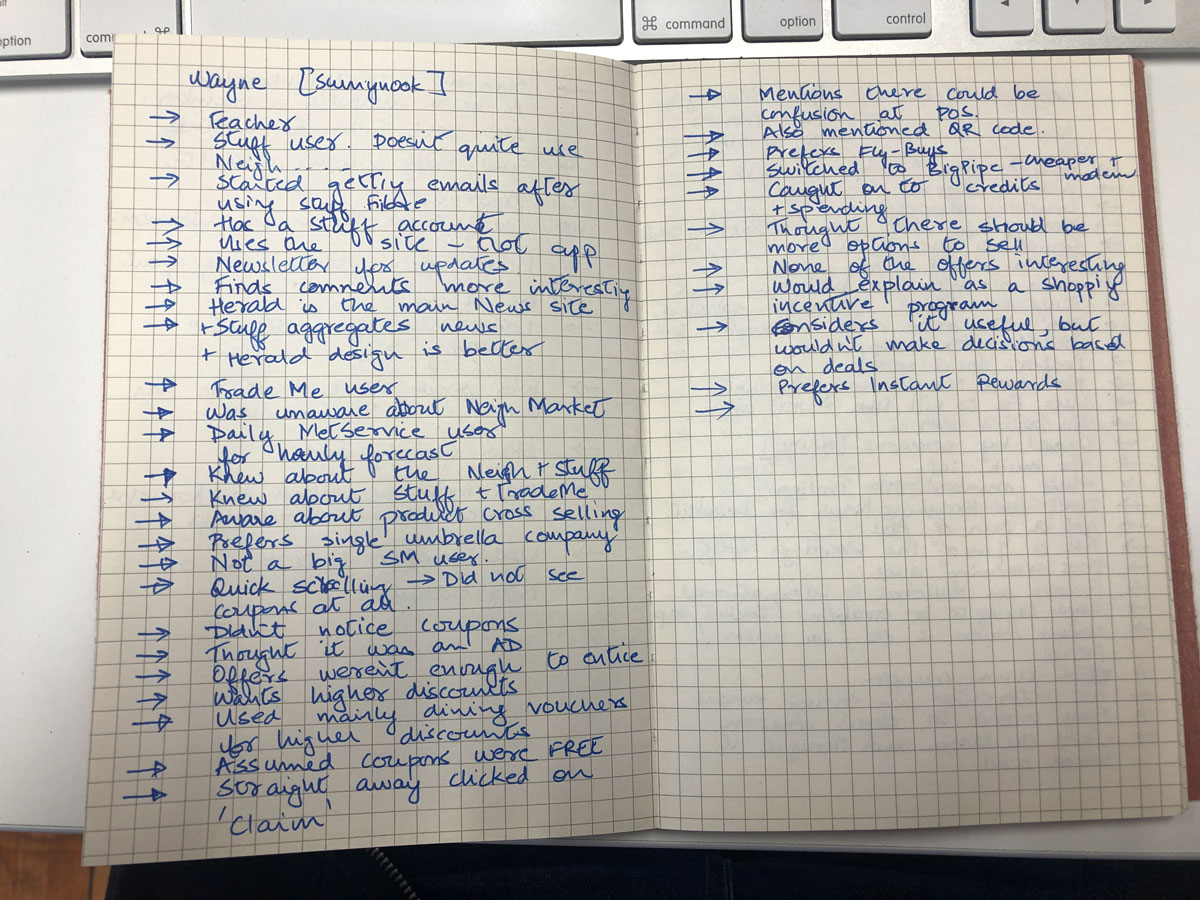 option
command
⌘
⌘ command
option
control
Wayne [Sunnynook]
→ Teacher
→ Stuff user. Doesn't quite use
Neigh.....
→ Started getting emails after
using stuff Fibre
→ Has a stuff account
→ Uses the site - not app
→ Newsletter for updates
→ Finds comments more interesting
→ Herald is the main News site
→ + Stuff aggregates news
+ Herald design is better
→ Trade Me user
→ Was unaware about Neigh Market
→ Daily MetService user
for hourly forecast
→ Knew about the Neigh + Stuff
→ Knew about Stuff + TradeMe
→ Aware about product cross selling
→ Prefers single umbrella company
→ Not a big SM user.
→ Quick scrolling → Did not see
coupons at all.
→ Didn't notice coupons
→ Thought it was an AD
→ Offers weren't enough to entice
→ Wants higher discounts
→ Used mainly dining vouchers
for higher discounts
→ Assumed coupons were FREE
→ Straight away clicked on
'Claim'
→ Mentions there could be
confusion at POS.
→ Also mentioned QR code.
→ Prefers Fly-Buys
→ Switched to BigPipe - cheaper +
modem
→ Caught on to credits
+ spending
→ Thought there should be
more options to sell
→ None of the offers interesting
→ Would explain as a shopping
incentive program
→ Considers it useful, but
wouldn't make decisions based
on deals
→ Prefers Instant Rewards
→